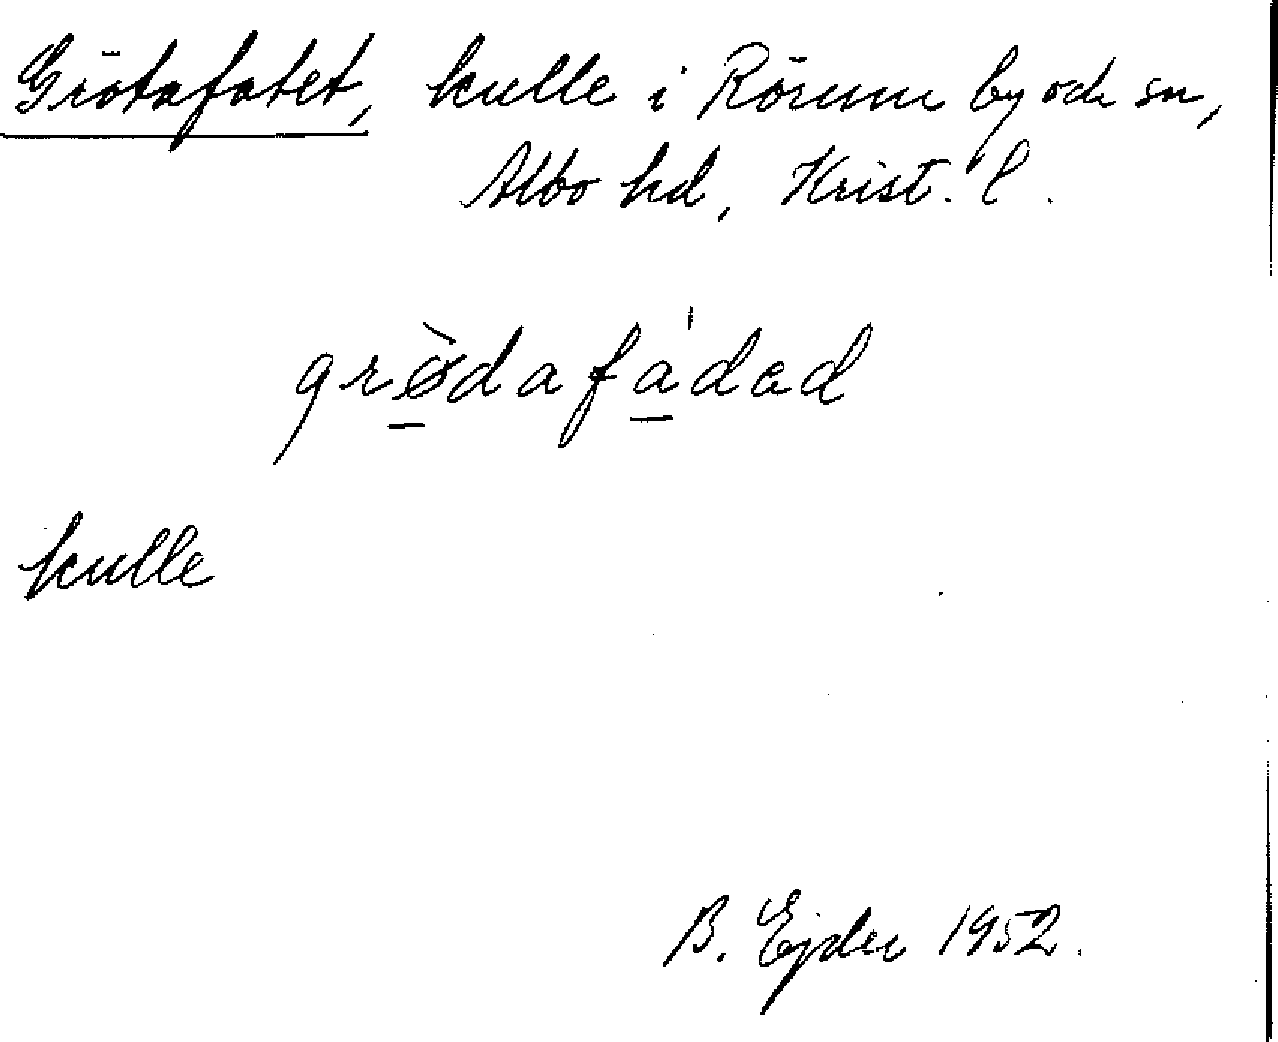 Grötafatet, kulle i Rörum by och sn,
Albo hd, Krist. l.
grø̀dafa'dad
kulle
B. Ejder 1952.